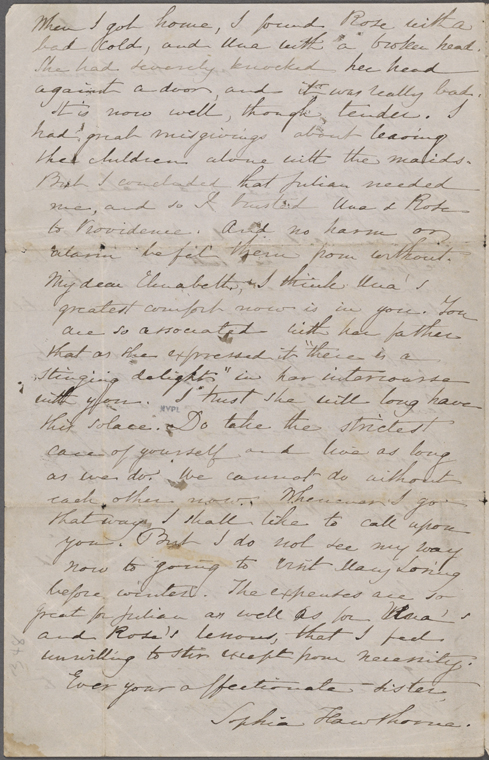 When I got home, I found Rose with a
bad cold, and Una with "a broken head."
She had severely knocked her head
against a door, and it was really bad.
It is now well, though tender. I
had great misgivings about leaving
the children alone with the maids.
But I concluded that Julian needed
me, and so I trusted Una & Rose
to Providence. And no harm or
alarm befel them from without.
My dear Elizabeth, I think Una's
greatest comfort now is in you. You
are so associated with her father
that as she expressed it "there is a
stinging delight" in her intercourse
with you. I trust she will long have
this solace. Do take the strictest
care of yourself and live as long
as we do. We cannot do without
each other now. Whenever I go
that way, I shall like to call upon
you. But I do not see my way
now to going to visit Mary Loring
before winter. The expenses are so
great for Julian as well as for Una's
and Rose's lessons, that I feel
unwilling to stir except from necessity.
Ever your affectionate sister
Sophia Hawthorne.
NYPL